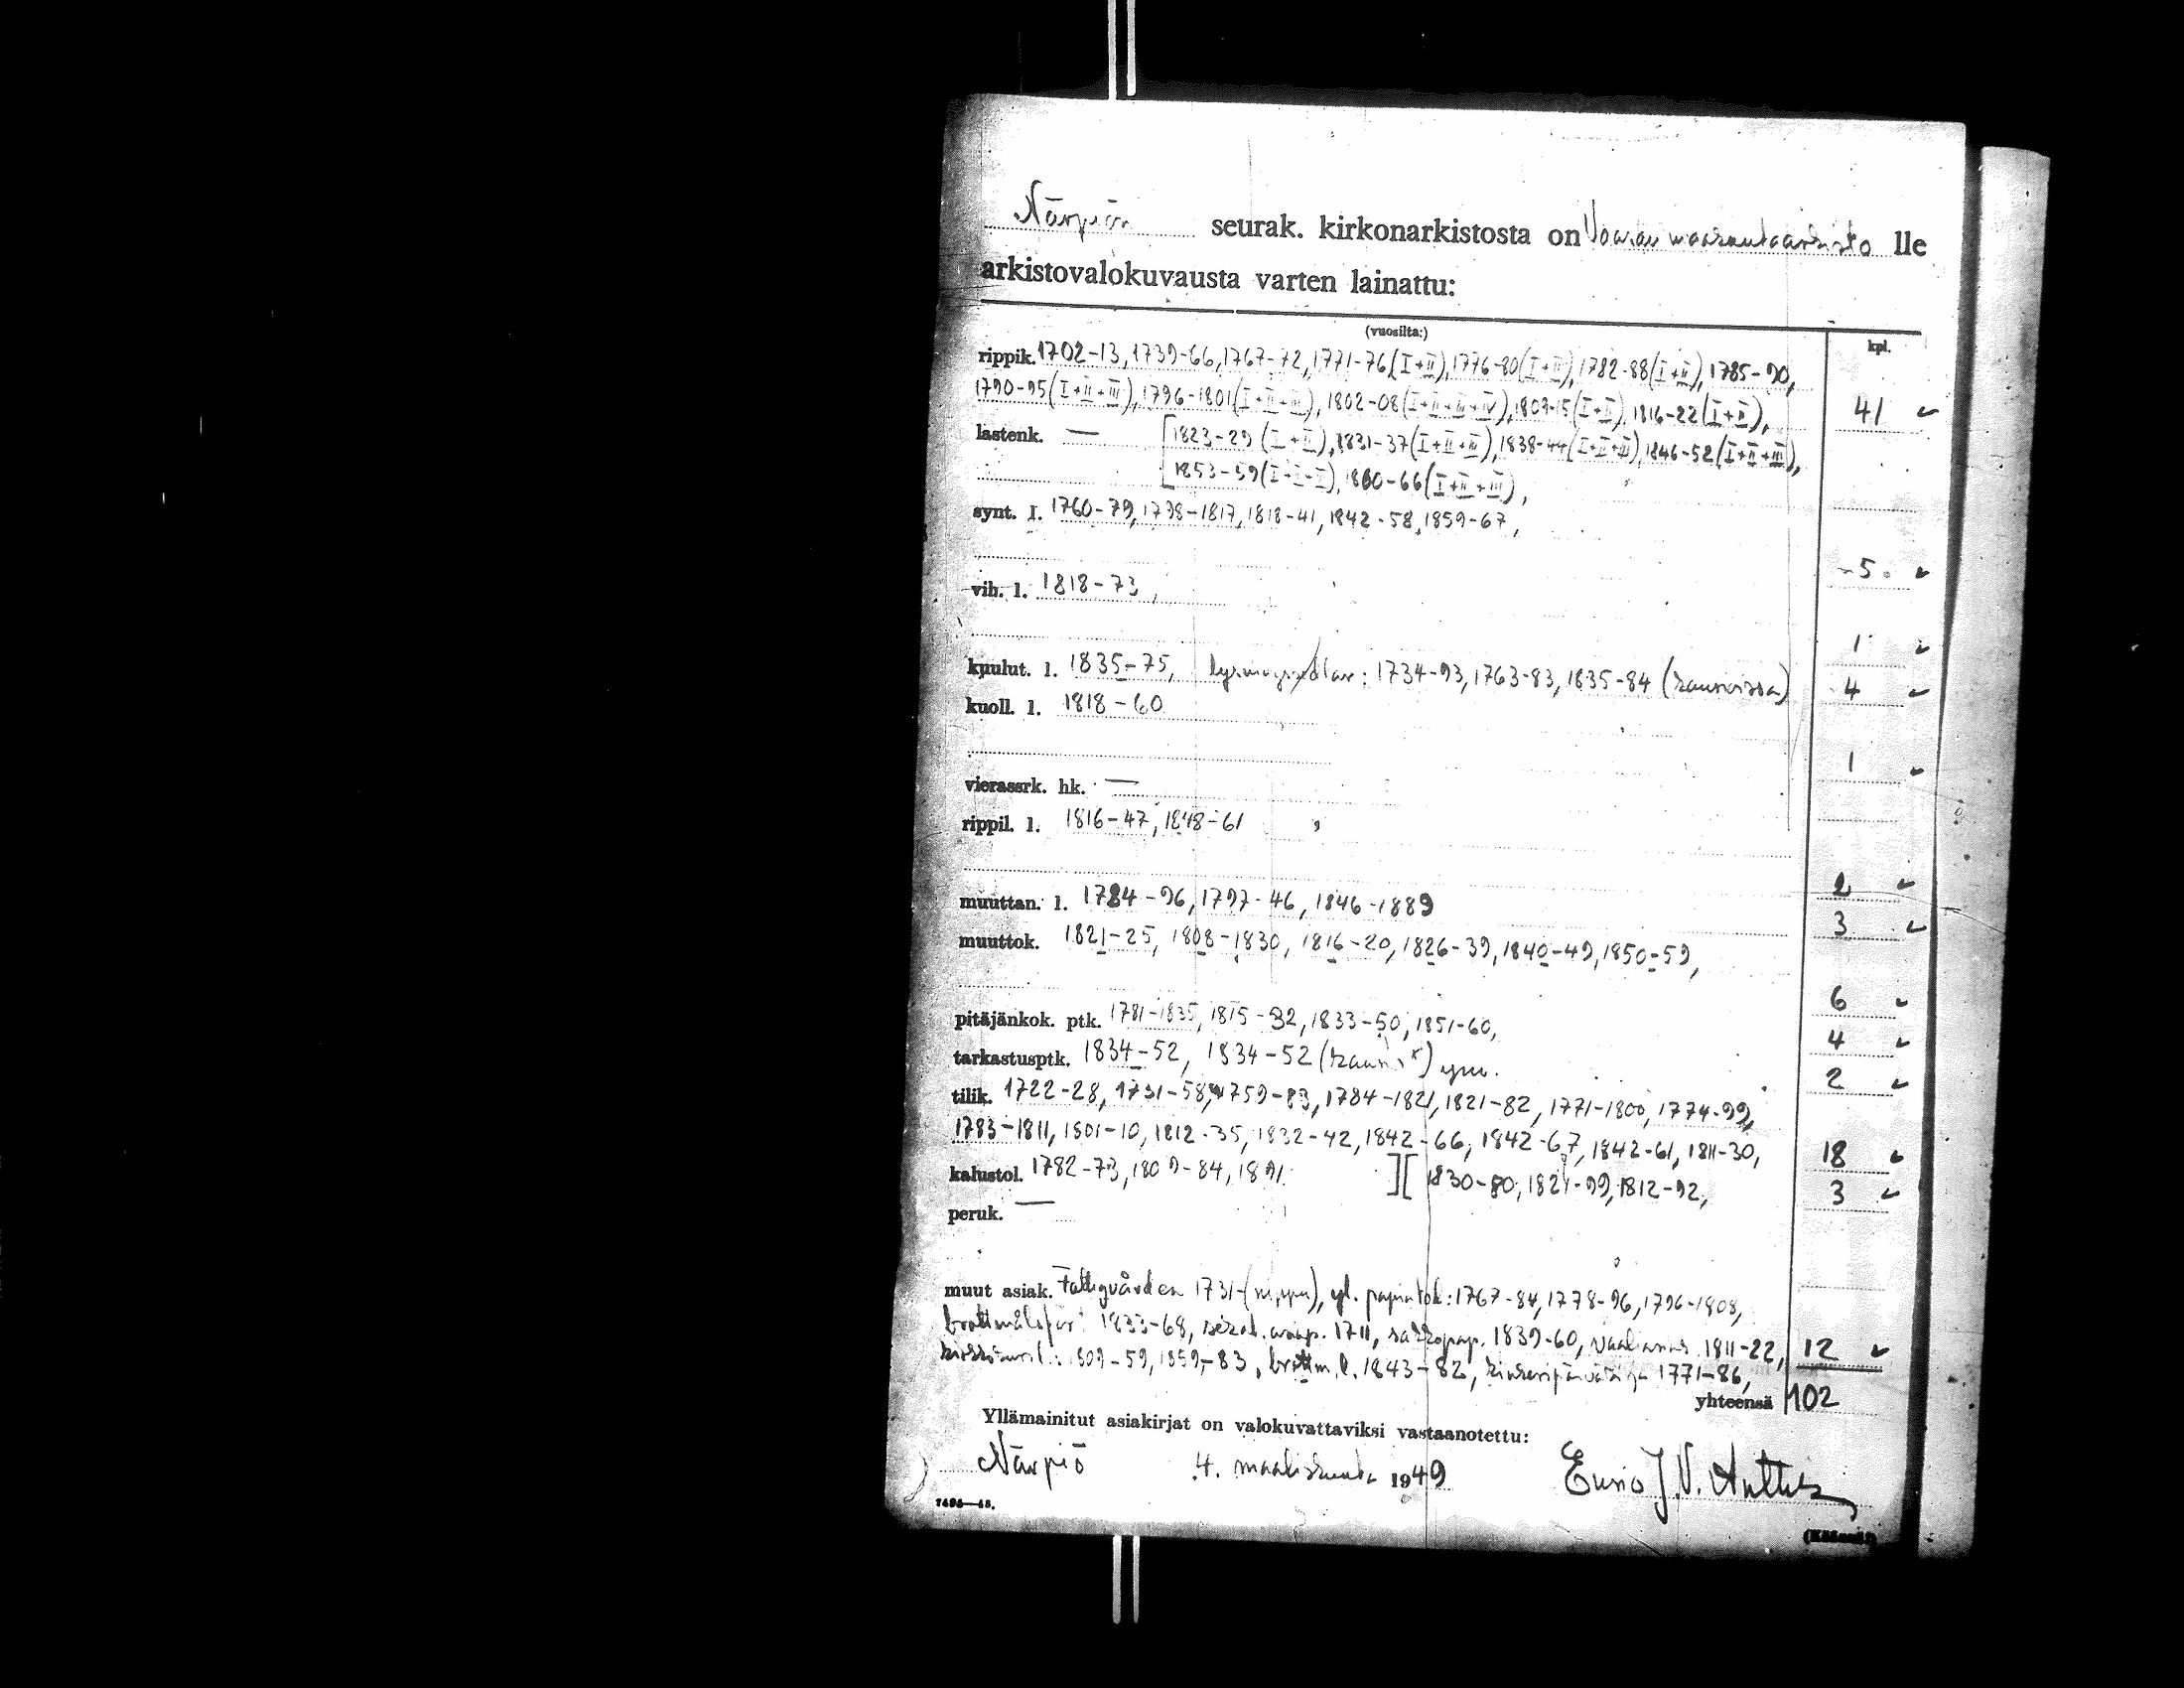 Närpiön seurak. kirkonarkistosta on Vaasan maakuntaarkisto lle
arkistovalokuvausta varten lainattu:
(vuosilta:) kpl.
rippik. 1702-13, 1739-66, 1767-72, 1771-76 (I+II), 1776-80 (I+II), 1782-88 (I+II), 1785-90,
1790-95 (I+II+III), 1796-1801 (I+II+III), 1802-08 (I+II+III+IV), 1807-15 (I+II), 1816-22 (I+II), 41
lastenk. — [1823-29 (I+II), 1831-37 (I+II+III), 1838-44 (I+II+III), 1846-52 (I+II+III),
1853-59 (I+II+III), 1860-66 (I+II+III),
synt. l. 1760-79, 1738-1817, 1818-41, 1842-58, 1859-67,
5
vih. l. 1818-73,
1
kuulut. l. 1835-75, 1734-93, 1763-83, 1835-84 (kansioissa) 4
kuoll. l. 1818-60
1
vierassrk. hk. —
rippil. l. 1816-47, 1848-61
2
muuttan. l. 1784-96, 1797-46, 1846-1889 3
muuttok. 1821-25, 1808-1830, 1816-20, 1826-39, 1840-49, 1850-59,
6
pitäjänkok. ptk. 1781-1835, 1815-32, 1833-50, 1851-60, 4
tarkastusptk. 1834-52, 1834-52 ym. 2
tilik. 1722-28, 1731-58, 1759-83, 1784-1821, 1821-82, 1771-1800, 1774-99,
1783-1811, 1801-10, 1812-35, 1832-42, 1842-66, 1842-67, 1842-61, 1811-30, 18
kalustol. 1782-73, 1809-84, 1891 ][ 1830-80, 1821-99, 1812-92, 3
peruk. —
muut asiak. Fattigvården 1731- (nippu), yl. 1767-84, 1778-96, 1796-1808,
brottmålsför. 1833-68, 1711, sakkopap. 1839-60, 1811-22, 12
1809-59, 1859-83, brottm. l. 1843-82, 1771-86,
yhteensä 102
Yllämainitut asiakirjat on valokuvattaviksi vastaanotettu:
Närpiö 4. maaliskuuta 1949